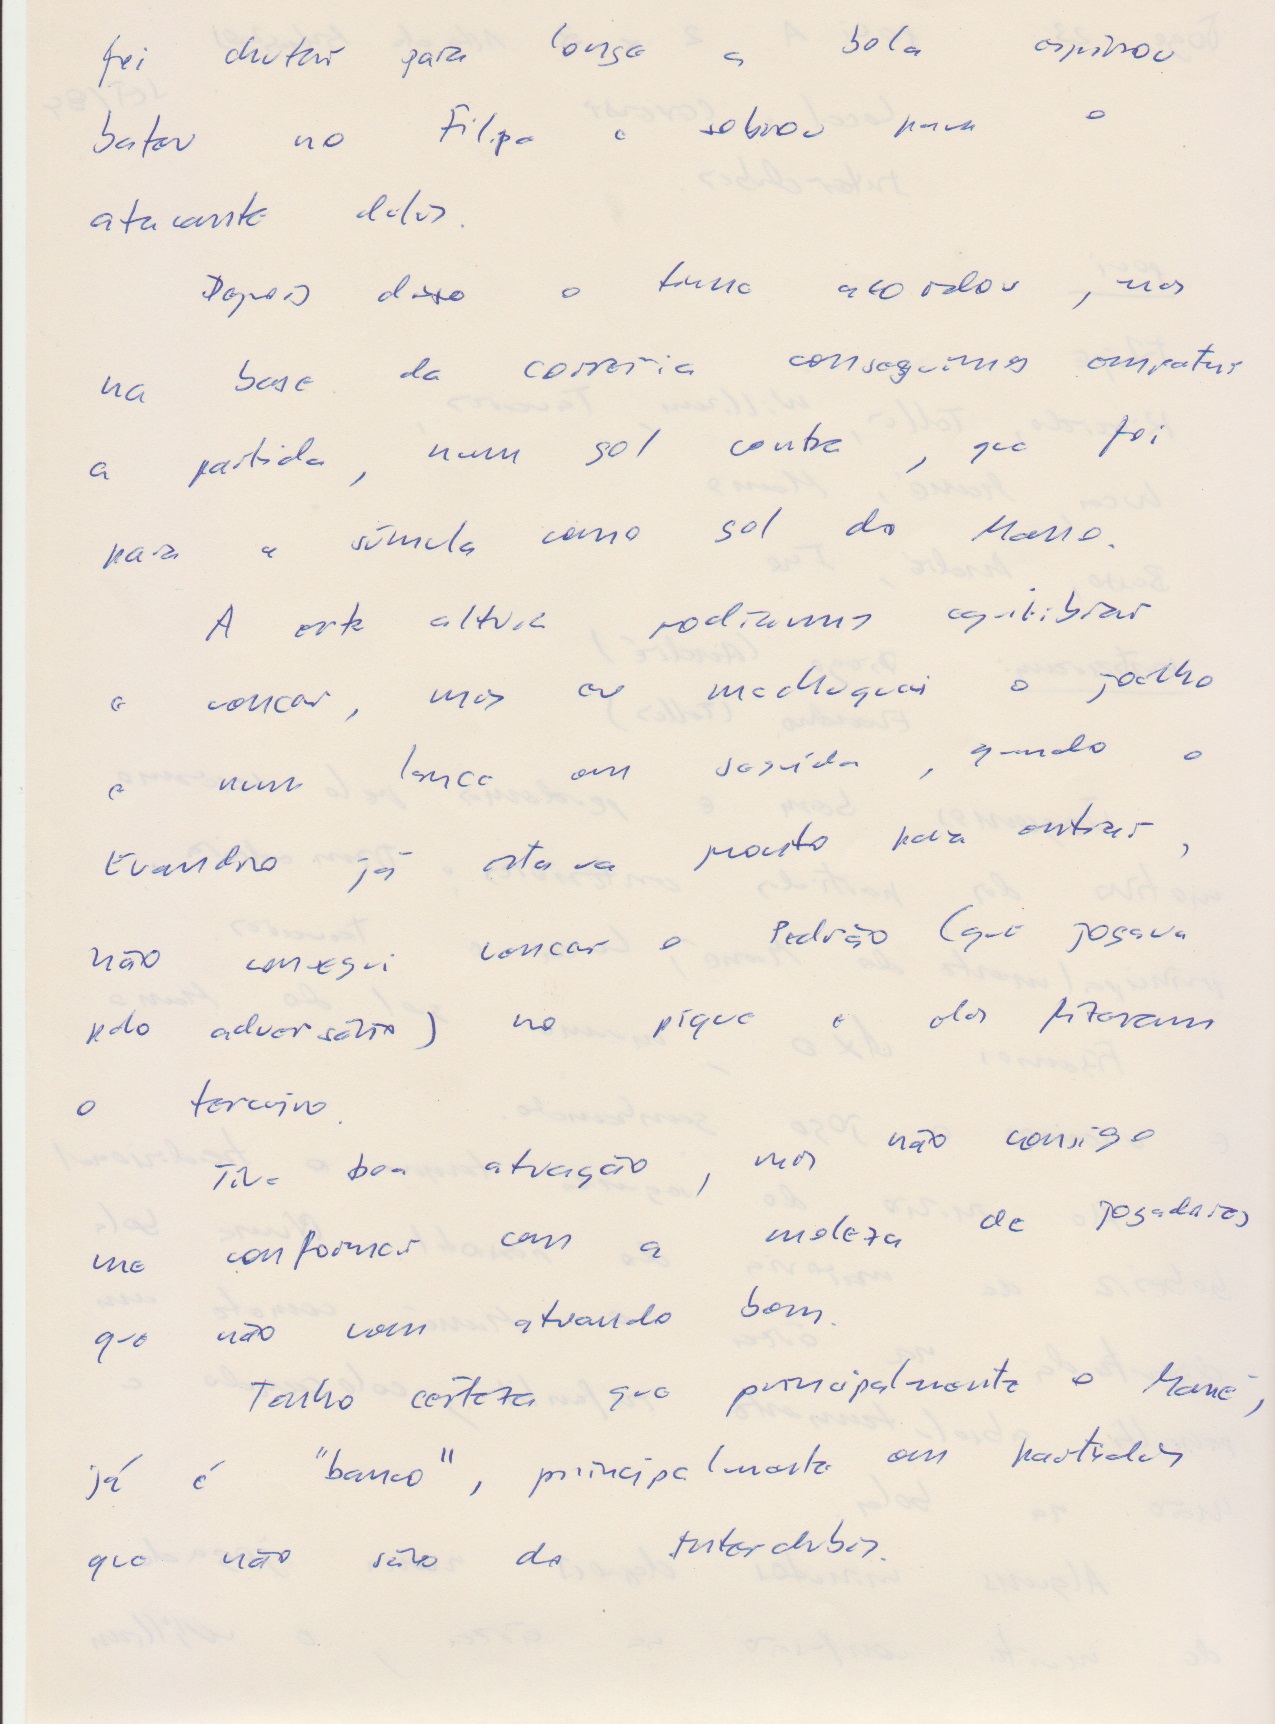 foi chutar para longe a bola espirrou
bateu no Filipe e sobrou para o
atacante deles.
Depois disso o time acordou, mas
na base da correria conseguimos empatar
a partida, num gol contra, que foi
para a súmula como gol do Mano.
A esta altura podíamos equilibrar
e vencer, mas eu machuquei o joelho
e num lance em seguida, quando o
Evandro já estava pronto para entrar,
não consegui vencer o Pedrão (que jogava
pelo adversário) no pique e eles fizeram
o terceiro.
Tive boa atuação, mas não consigo
me conformar com a moleza de jogadores
que não vem atuando bem.
Tenho certeza que principalmente o Mané,
já é "banco", principalmente em partidas
que não são do Interclubes.